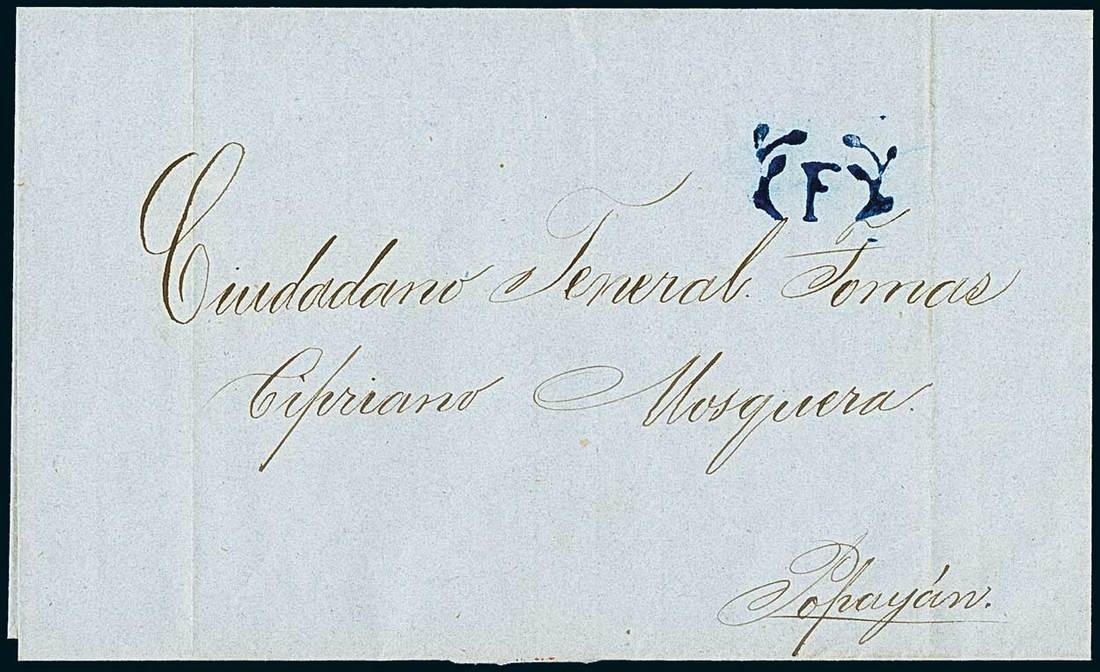 F
Ciudadano General. Tomas
Cipriano Mosquera.
Popayán.